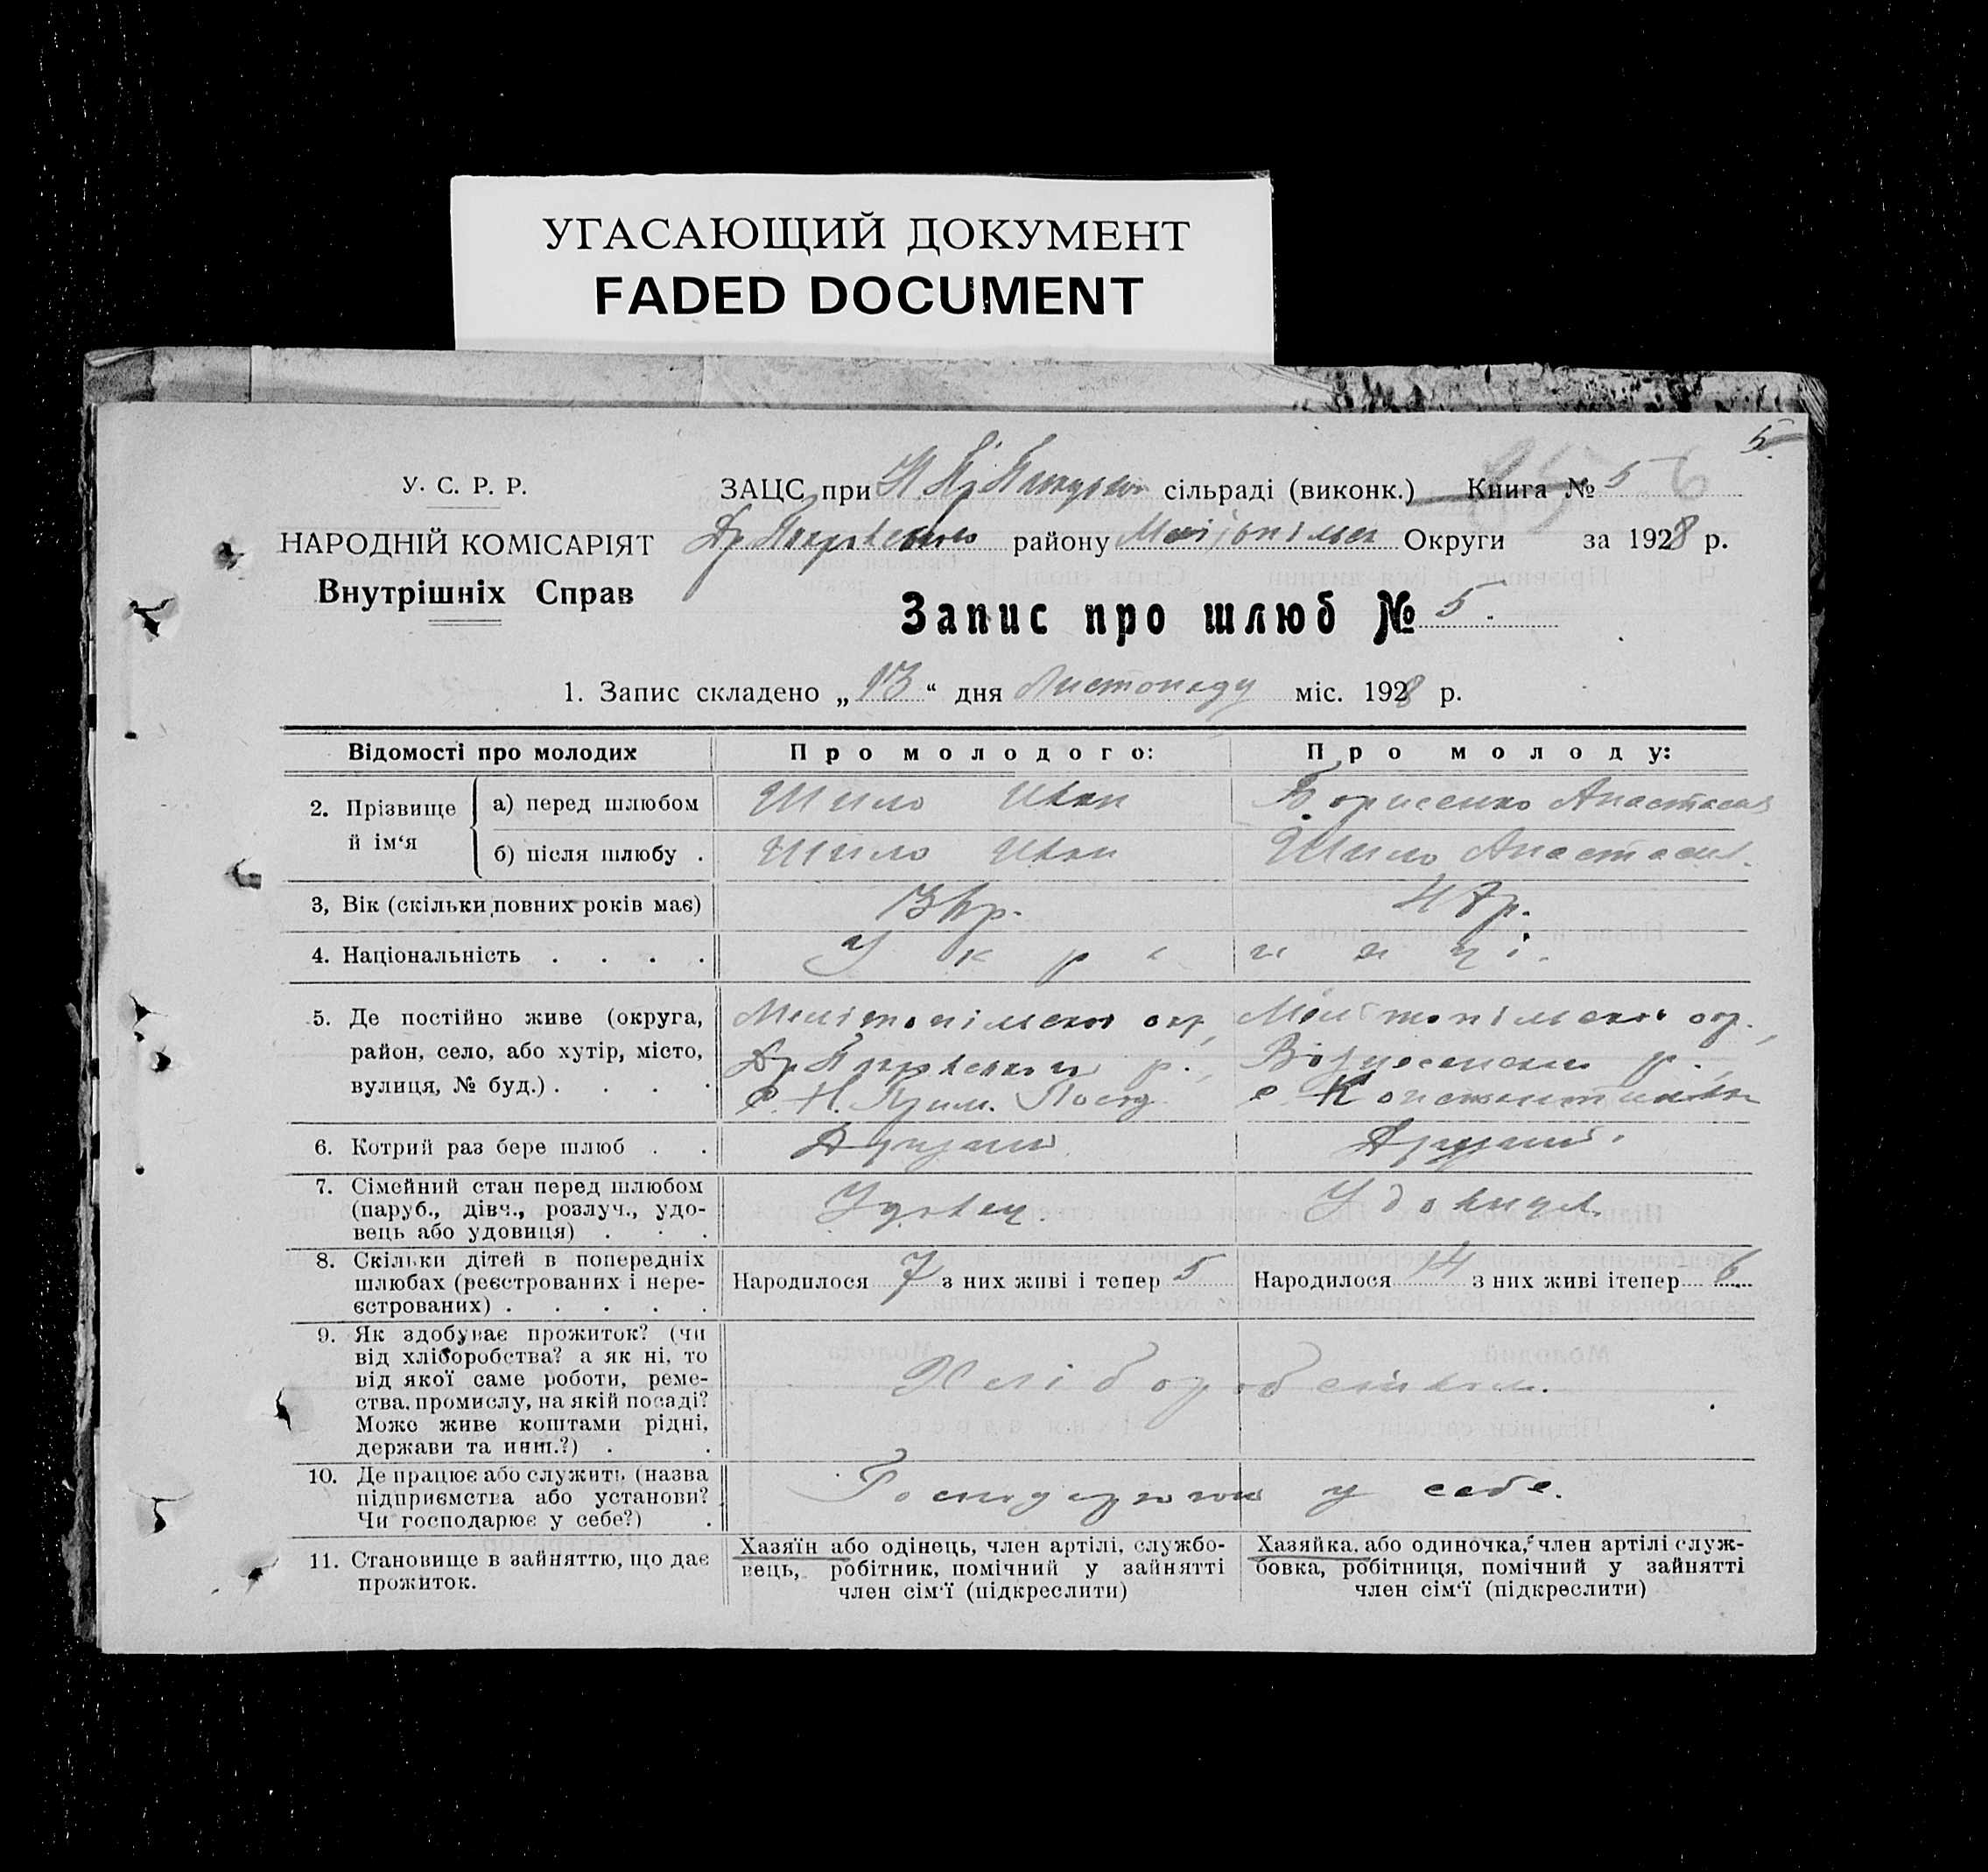 УГАСАЮЩИЙ ДОКУМЕНТ
FADED DOCUMENT
5
У. С. Р. Р.
ЗАЦС при сільраді (виконк.) Книга № 5 6
НАРОДНІЙ КОМІСАРІЯТ
району Округи за 1928 р.
Внутрішніх Справ
Запис про шлюб № 5.
1. Запис складено „13“ дня Листопаду міс. 1928 р.
Відомості про молодих
Про молодого:
Про молоду:
2. Прізвище й ім‘я
а) перед шлюбом
Шило Иван
Борисенко Анастасия
б) після шлюбу .
Шило Иван
Шило Анастасия.
3, Вік (скільки повних років має)
р.
47 р.
4. Національність . . . .
Украинці.
5. Де постійно живе (округа,
район, село, або хутір, місто,
вулиця, № буд.) . . . .
Мелітопільскої окр,
р.,
с. Н.
Мелітопільскої окр.,
р.,
с.
6. Котрий раз бере шлюб . .
Другий
Другий.
7. Сімейний стан перед шлюбом
(паруб., дівч., розлуч., удо-
вець або удовиця) . . .
Удовец.
Удовиця.
8. Скільки дітей в попередніх
шлюбах (реєстрованих і нере-
єстрованих) . . . . .
Народилося 7 з них живі і тепер 5
Народилося 14 з них живі ітепер 6
9. Як здобуває прожиток? (чи
від хліборобства? а як ні, то
від якої саме роботи, реме-
ства, промислу, на якій посаді?
Може живе коштами рідні,
держави та инш.?) . .
Хліборобством.
10. Де працює або служить (назва
підприємства або установи?
Чи господарює у себе?) .
у себе.
11. Становище в зайняттю, що дає
прожиток.
Хазяїн або одінець, член артілі, службо-
вець, робітник, помічний у зайнятті
член сім‘ї (підкреслити)
Хазяйка, або одиночка, член артілі служ-
бовка, робітниця, помічний у зайнятті
член сім‘ї (підкреслити)